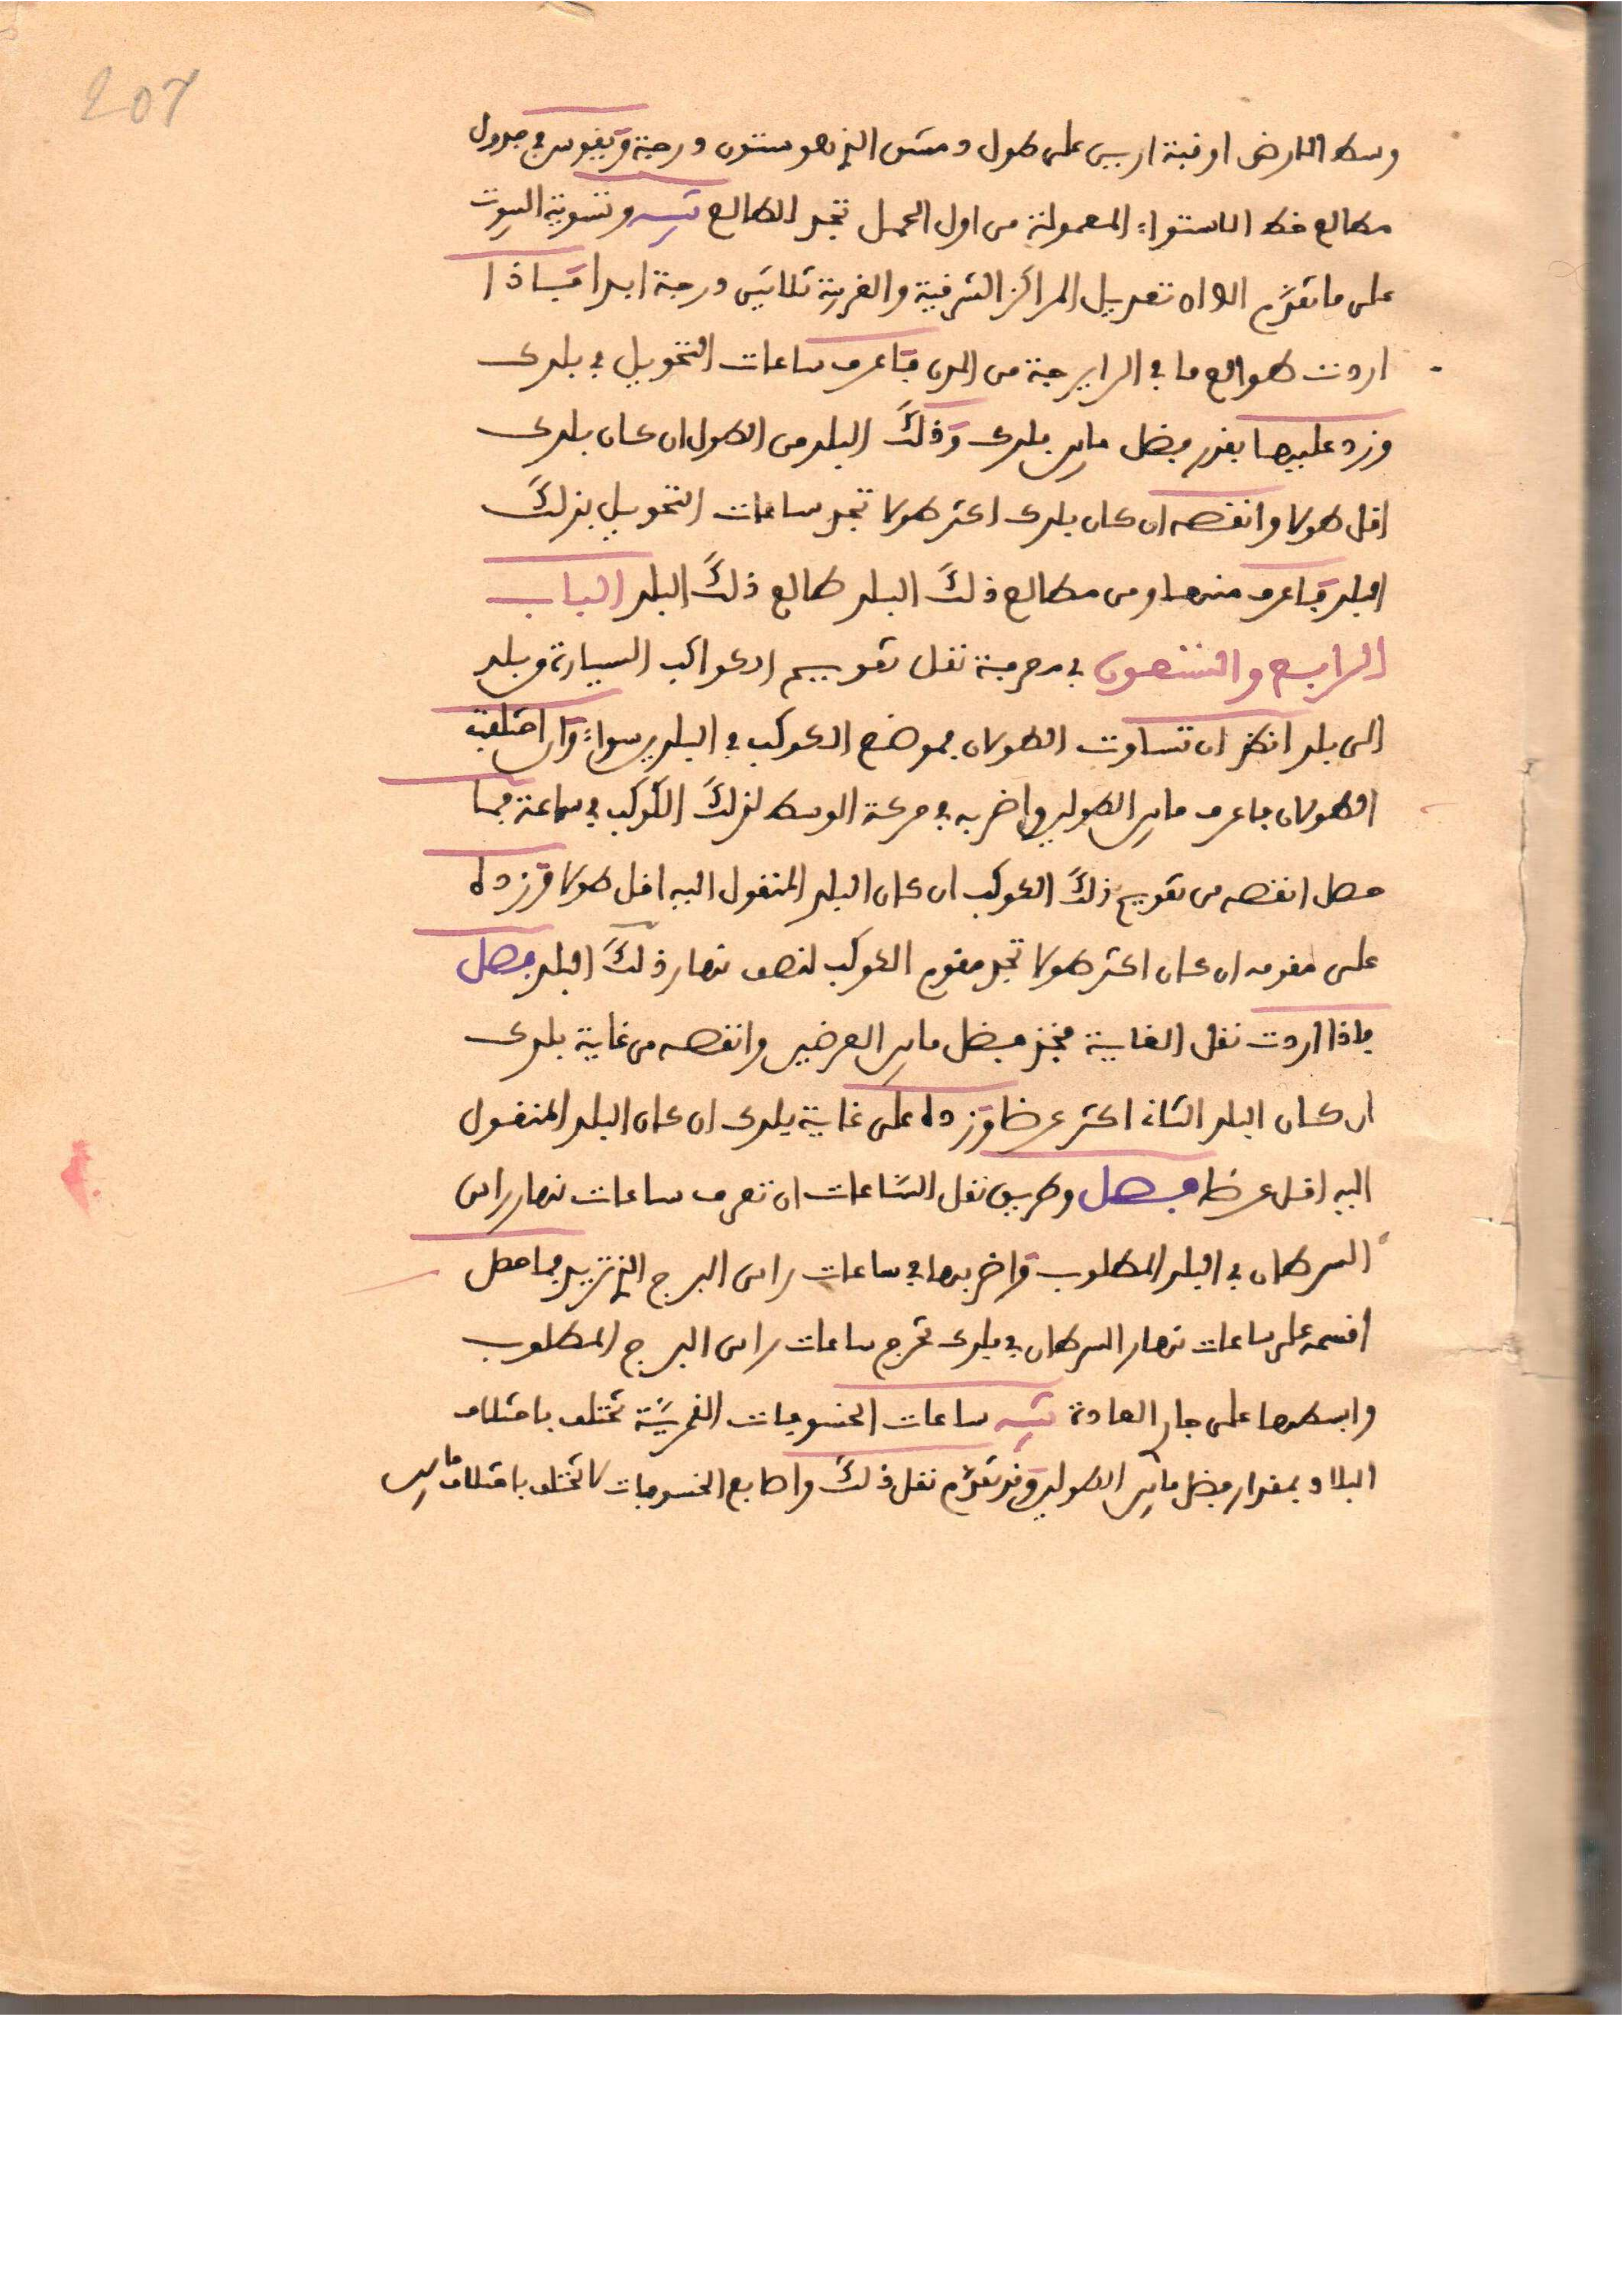 207
وسط الارض او قبة اريين على طول دمشق الذي هو ستون درجة وتقوس في جدول
مطالع خط الاستواء المعمولة من اول الحمل تجد الطالع تنبيه وتسوية البيوت
على ما تقدم الا ان تعديل المراكز الشرقية والغربية ثلاثين درجة ابدا فاذا
اردت طوالع ما في الزايرجة من المدن فاعرف ساعات التحويل في بلدك
وزد عليها بقدر فضل ما بين بلدك وذلك البلد من الطول ان كان بلدك
اقل طولا وانقصه ان كان بلدك اكثر طولا تجد ساعات التحويل بذلك
البلد فاعرف منها ومن مطالع ذلك البلد طالع ذلك البلد الباب
الرابع والستون في معرفة نقل تقويم الكواكب السيارة من بلد
الى بلد انظر ان تساوت الطولان فموضع الكوكب في البلدين سواء وان اختلفت
الطولان فاعرف ما بين الطولين واضربه في حركة الوسط لذلك الكوكب في ساعة فما
حصل انقصه من تقويم ذلك الكوكب ان كان البلد المنقول اليه اقل طولا وزده
على مقومه ان كان اكثر طولا تجد مقوم الكوكب لنصف نهار ذلك البلد فصل
فاذا اردت نقل الغاية فخذ فضل ما بين العرضين وانقصه من غاية بلدك
ان كان البلد الثاني اكثر عرضا وزده على غاية بلدك ان كان البلد المنقول
اليه اقل عرضا فصل وطريق نقل الساعات ان تعرف ساعات نهار راس
السرطان في البلد المطلوب واضربها في ساعات راس البرج الذي تريد فما حصل
اقسمه على ساعات نهار السرطان في بلدك تخرج ساعات راس البرج المطلوب
وابسطها على جار العادة تنبيه ساعات الخسوفات القمرية تختلف باختلاف
البلاد بمقدار فضل ما بين الطولين وقد تقدم نقل ذلك واصابع الخسوفات لا تختلف باختلاف ما بين